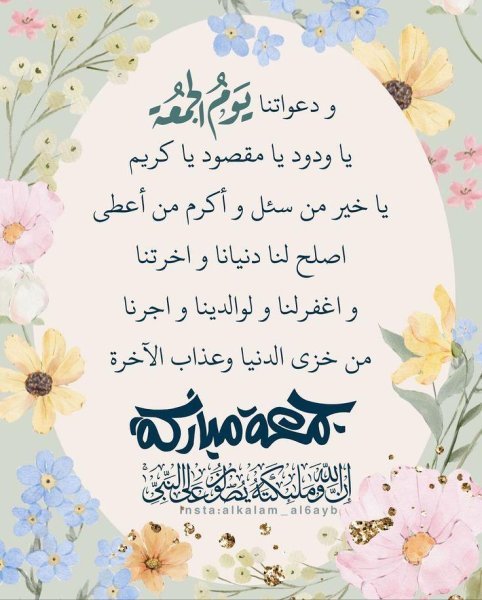 و دعواتنا يَومُ الجُمُعة
يا ودود يا مقصود يا كريم
يا خير من سئل و أكرم من أعطى
اصلح لنا دنيانا و اخرتنا
و اغفرلنا و لوالدينا و اجرنا
من خزى الدنيا وعذاب الآخرة
جمعة مباركة
إن الله وملئكته يصلون على النبي
insta:alkalam_al6ayb